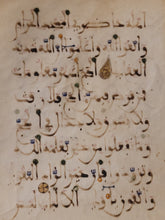 أهله حاضري المسجد الحرام
واتقوا الله واعلموا أن الله شديد
العقاب الحج أشهر معلومات
فمن فرض فيهن الحج فلا رفث
ولا فسوق ولا جدال في الحج
وما تفعلوا من خير يعلمه الله
وتزودوا فإن خير الزاد التقوى
واتقون يأولي الألباب